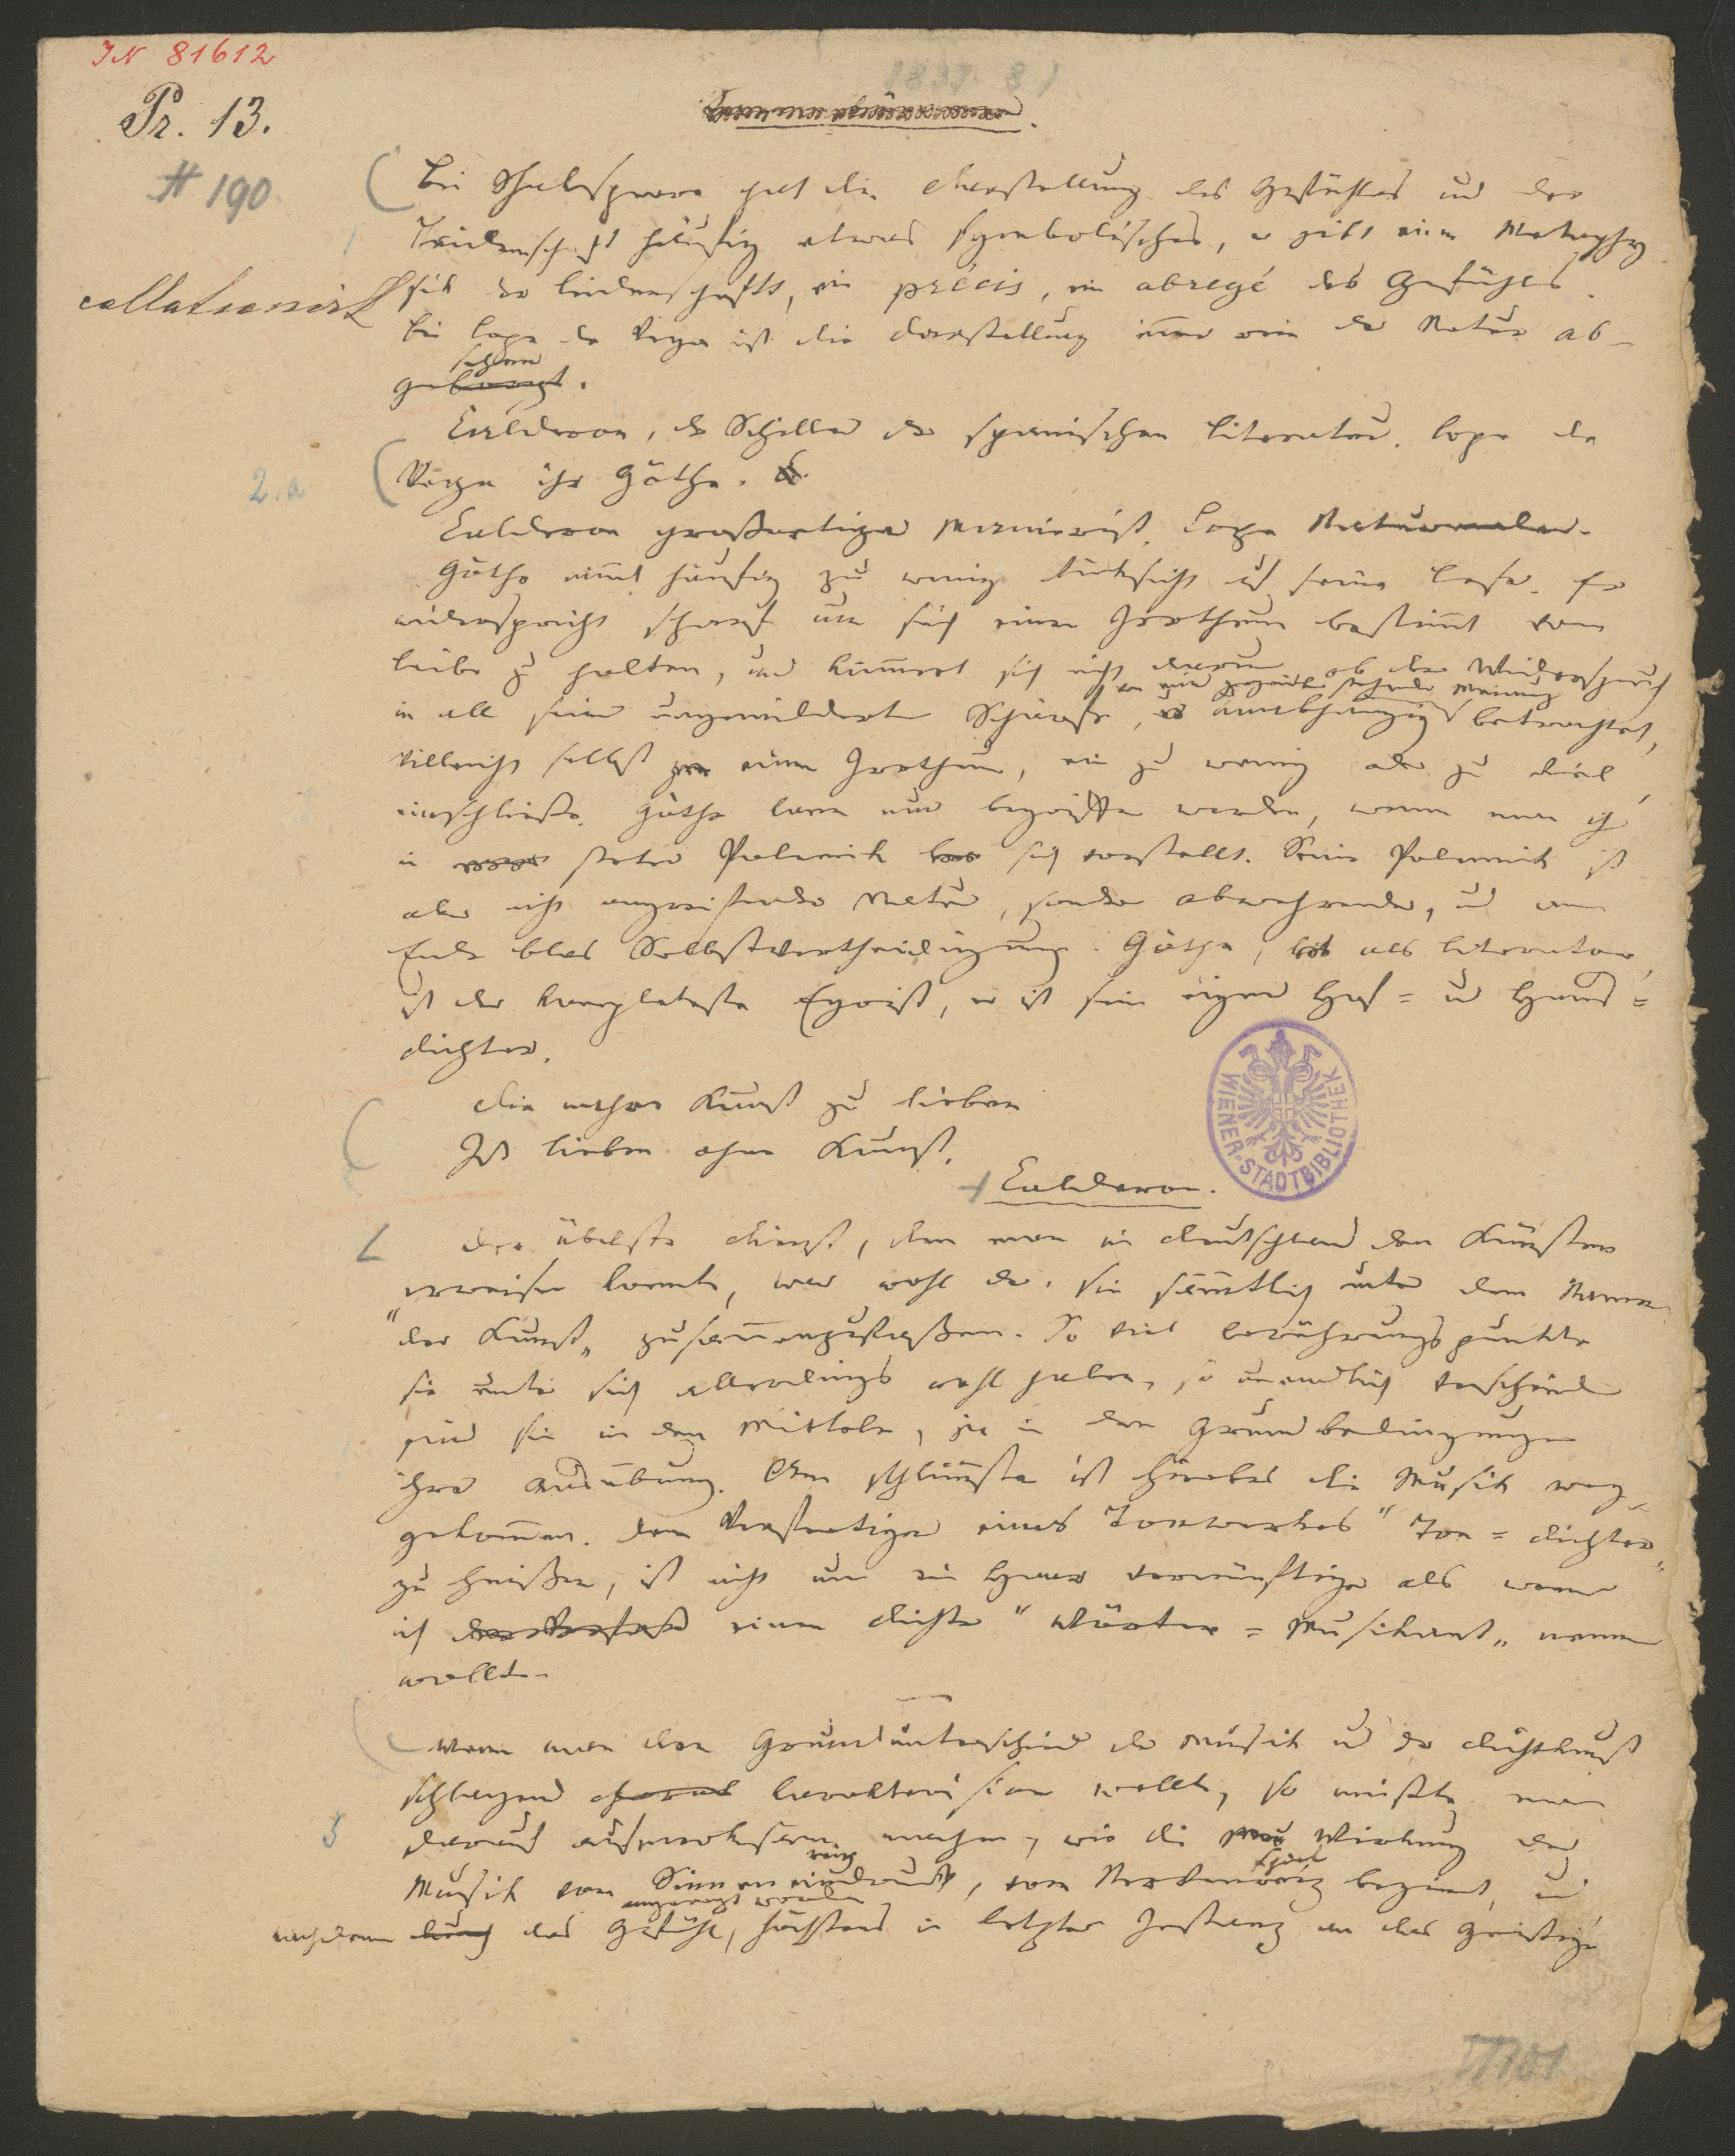 IN 81612
Pr. 13.
# 190
collationirt
Bei Shakespeare hat die Darstellung des Gefühles und der
Leidenschaft häufig etwas symbolisches, er gibt eine Metaphy
sik der Leidenschaft, ein précis, ein abregé des Gefühles.
bei Lope de Vega ist die Darstellung immer wie der Natur ab-
gesehen
geborgt.
Calderon, der Schiller der spanischen Literatur. Lope de
Vega ihr Göthe.
2.a
Calderon großartiger Manierist, Lope Naturmaler.
Göthe nimmt häufig zu wenig Rücksicht auf seine Leser. Er
widerspricht scharf um sich einen Irrthum bestimmt vom
Leibe zu halten, und kümmert sich nicht darum ob der Widerspruch
von einer gegenüber stehenden Meinung
in all seiner ungemilderten Schärfe, unabhängig betrachtet,
villeicht selbst einen Irrthum, ein zu wenig oder zu viel
einschließe. Göthe kann nur begriffen werden, wenn man ihn
in steter Polemik sich vorstellt. Seine Polemik ist
aber nicht angreifender Natur, sondern abwehrender, und am
Ende blos Selbstvertheidigung. Göthe, als Literator,
ist der kompleteste Egoist, er ist sein eigner Hof= und Haus=
dichter.
Die wahre Kunst zu lieben
Ist lieben ohne Kunst.
Calderon.
Der übelste Dienst, den man in Deutschland den Künsten
erweisen konnte, war wohl der, sie sämmtlich unter dem Namen
"der Kunst" zusammenzufaßen. So viel Berührungspunkte
sie unter sich allerdings wohl haben, so unendlich verschieden
sind sie in den Mitteln, ja in den Grundbedingungen
ihrer Ausübung. Am schlimmsten ist hierbei die Musik weg-
gekommen. Den Verfertiger eines Tonwerkes "Ton=dichter"
zu heißen, ist nicht um ein Haar vernünftiger als wenn
ich einen Dichter "Wörter=Musikant" nennen
wollte.
Wenn man den Grundunterschied der Musik und der Dichtkunst
schlagend karakterisiren wollte, so müßte man
3
darauf aufmerksam machen, wie die Wirkung der
reiz
spiel
Musik vom Sinneneindruck, vom Nerven beginnt, und
angeregt worden
nachdem durch das Gefühl, höchstens in letzter Instanz an das Geistige
WIENER-STADTBIBLIOTHEK